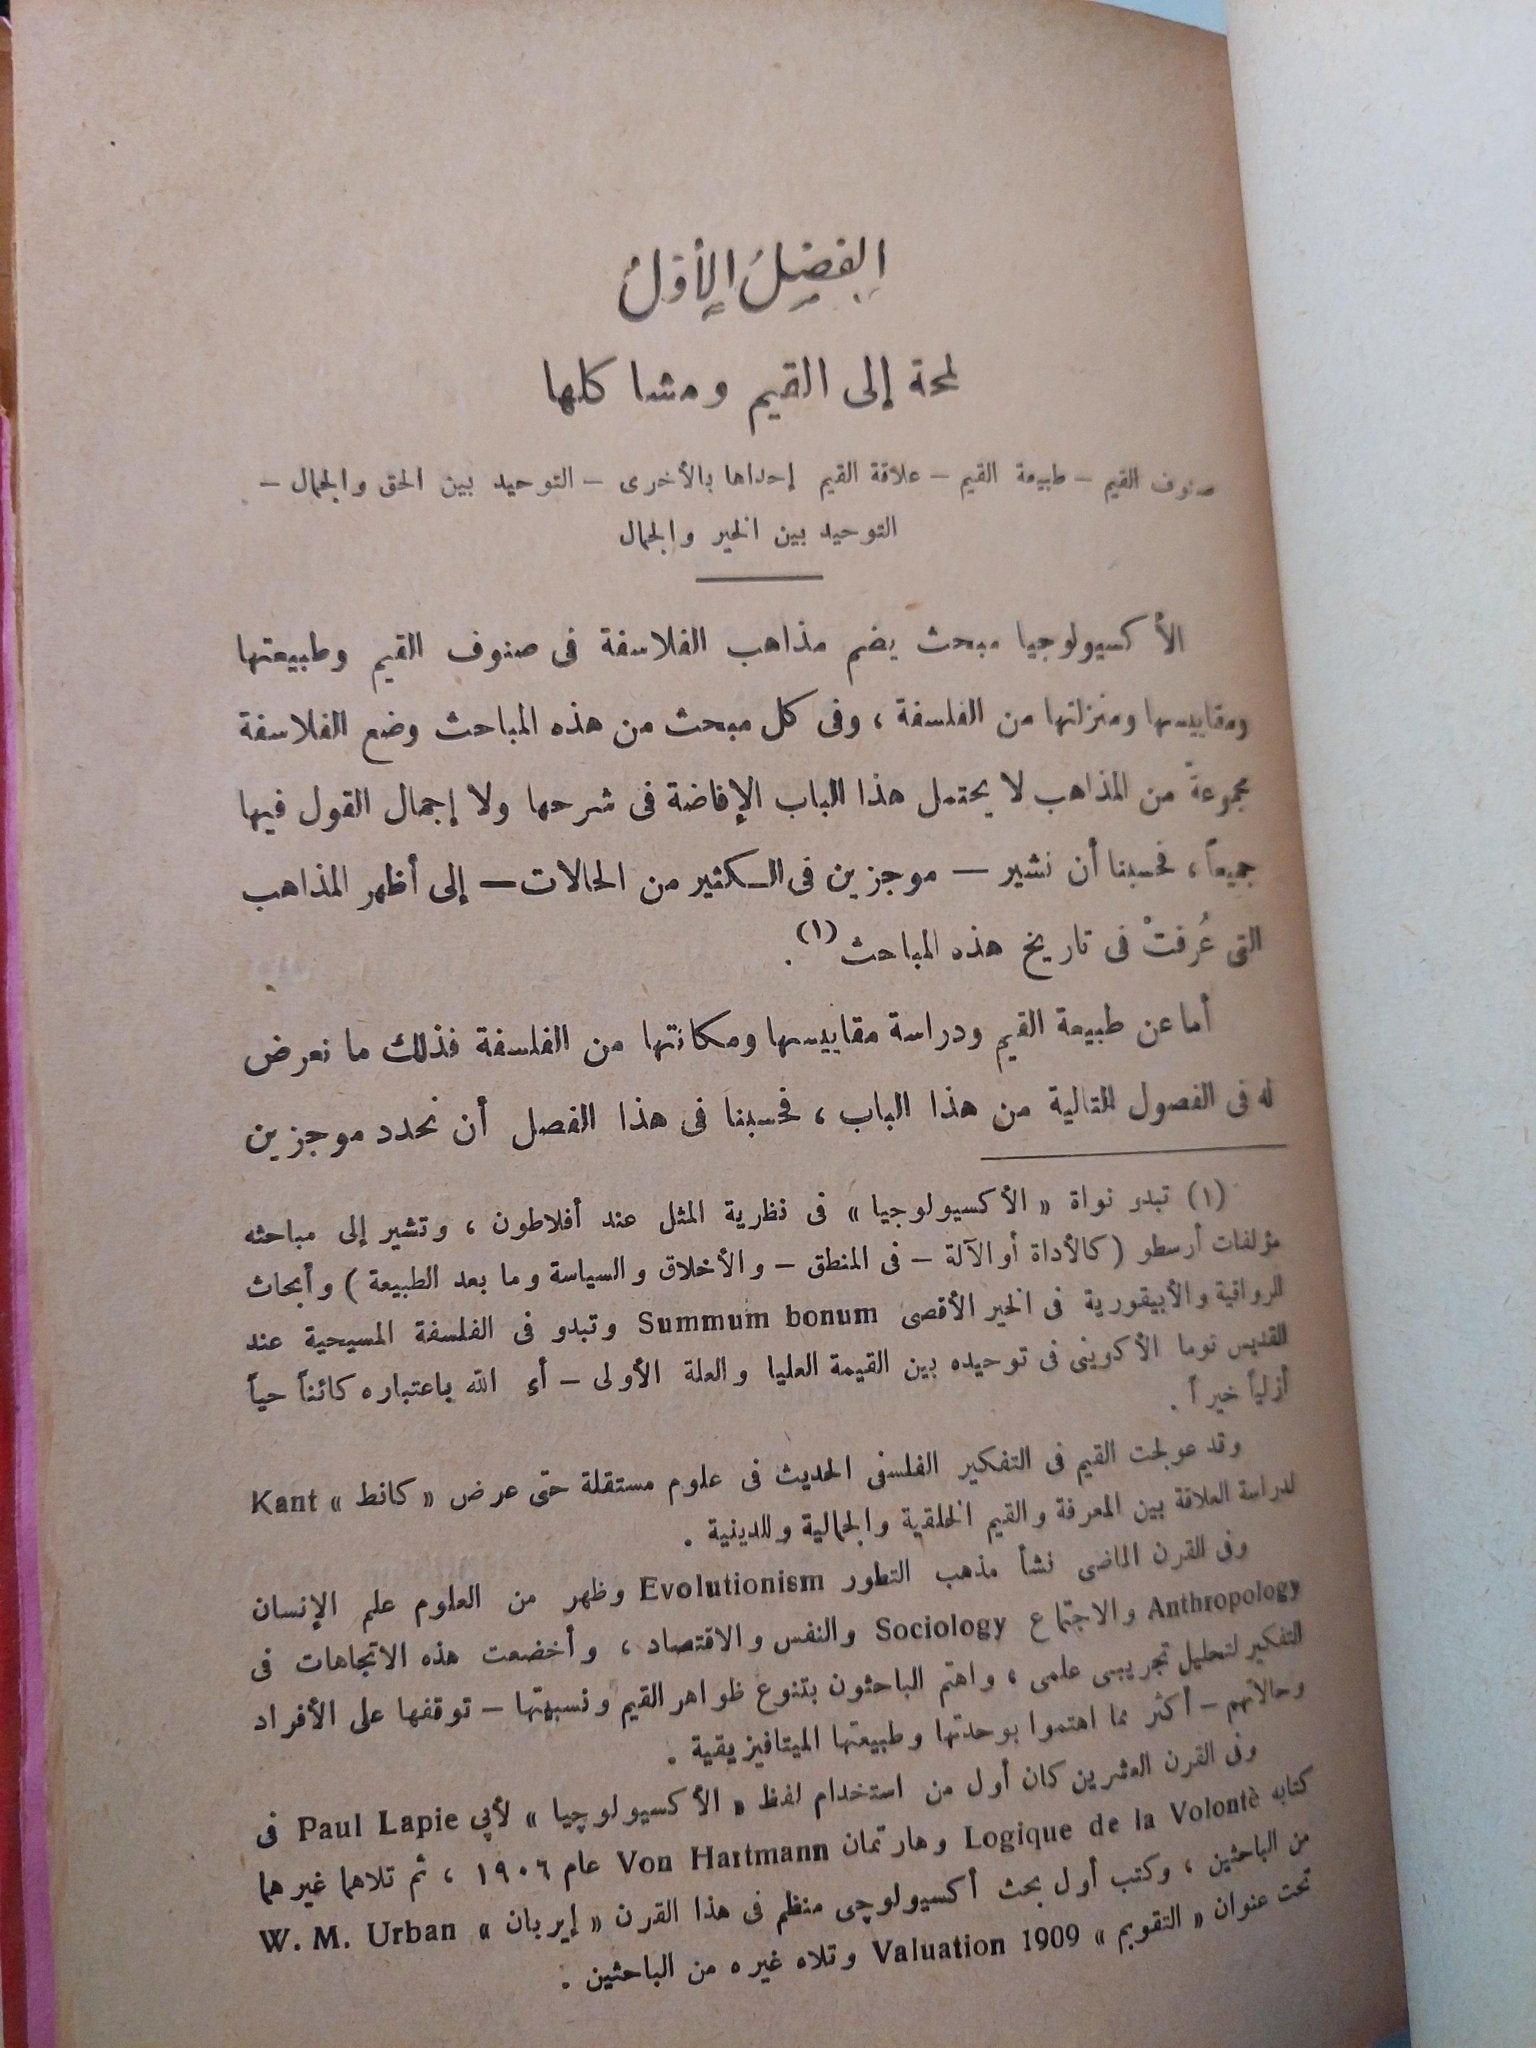 الفصل الأول
لمحة إلى القيم ومشاكلها
صنوف القيم – طبيعة القيم – علاقة القيم إحداها بالأخرى – التوحيد بين الحق والجمال –
التوحيد بين الخير والجمال
الأكسيولوجيا مبحث يضم مذاهب الفلاسفة فى صنوف القيم وطبيعتها
ومقاييسها ومنزلتها من الفلسفة ، وفى كل مبحث من هذه المباحث وضع الفلاسفة
مجموعةً من المذاهب لا يحتمل هذا الباب الإفاضة فى شرحها ولا إجمال القول فيها
جميعاً ، فحسبنا أن نشير — موجزين فى الكثير من الحالات — إلى أظهر المذاهب
التى عُرفتْ فى تاريخ هذه المباحث (١) .
أما عن طبيعة القيم ودراسة مقاييسها ومكانتها من الفلسفة فذلك ما نعرض
له فى الفصول التالية من هذا الباب ، فحسبنا فى هذا الفصل أن نحدد موجزين
(١) تبدو نواة « الأكسيولوجيا » فى نظرية المثل عند أفلاطون ، وتشير إلى مباحثه
مؤلفات أرسطو ( كالأداة أو الآلة – فى المنطق – والأخلاق والسياسة وما بعد الطبيعة ) وأبحاث
الرواقية والأبيقورية فى الخير الأقصى Summum bonum وتبدو فى الفلسفة المسيحية عند
القديس توما الأكوينى فى توحيده بين القيمة العليا والعلة الأولى – أى الله باعتباره كائناً حياً
أزلياً خيراً .
وقد عولجت القيم فى التفكير الفلسفى الحديث فى علوم مستقلة حتى عرض « كانط » Kant
لدراسة العلاقة بين المعرفة والقيم الخلقية والجمالية والدينية .
وفى القرن الماضى نشأ مذهب التطور Evolutionism وظهر من العلوم علم الإنسان
Anthropology والاجتماع Sociology والنفس والاقتصاد ، وأخضعت هذه الاتجاهات فى
التفكير لتحليل تجريبى علمى ، واهتم الباحثون بتنوع ظواهر القيم ونسبيتها – توقفها على الأفراد
وحالاتهم – أكثر مما اهتموا بوحدتها وطبيعتها الميتافيزيقية .
وفى القرن العشرين كان أول من استخدام لفظ « الأكسيولوچيا » لأپي Paul Lapie فى
كتابه Logique de la Volontè وهارتمان Von Hartmann عام ١٩٠٦ ، ثم تلاهما غيرهما
من الباحثين ، وكتب أول بحث أكسيولوچى منظم فى هذا القرن « إيربان » W. M. Urban
تحت عنوان « التقويم » Valuation 1909 وتلاه غيره من الباحثين .